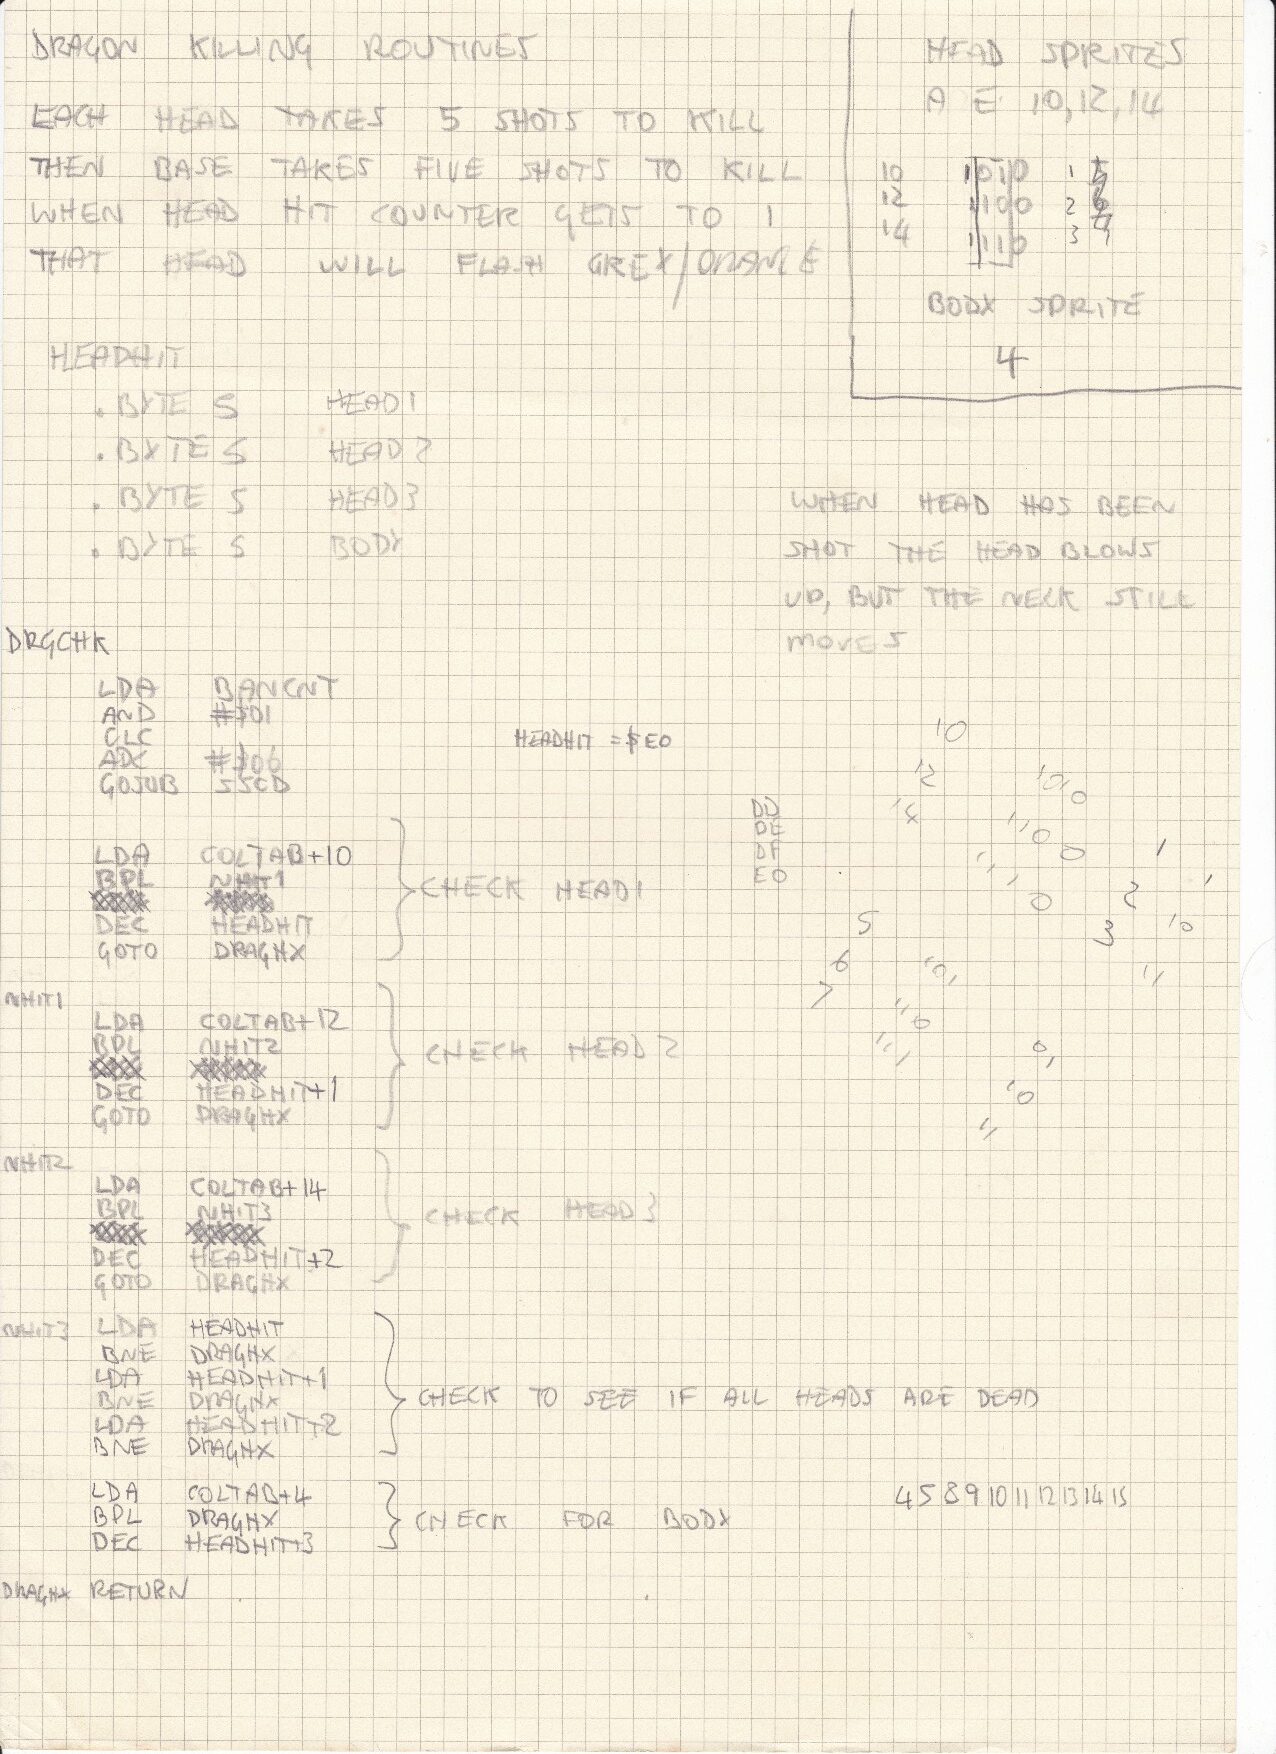 DRAGON KILLING ROUTINES
EACH HEAD TAKES 5 SHOTS TO KILL
THEN BASE TAKES FIVE SHOTS TO KILL
WHEN HEAD HIT COUNTER GETS TO 1
THAT HEAD WILL FLASH GREY/ORANGE
HEAD SPRITES
A E 10,12,14
10 1010 1
12 1100 2
14 1110 3
BODY SPRITE
4
HEADHIT
.BYTE 5 HEAD1
.BYTE 5 HEAD2
.BYTE 5 HEAD3
.BYTE 5 BODY
WHEN HEAD HAS BEEN
SHOT THE HEAD BLOWS
UP, BUT THE NECK STILL
MOVES
DRGCHK
LDA BANCNT
AND #$01
CLC
ADC #$06
GOSUB SSCD
HEADHIT = $E0
LDA COLTAB+10
BPL NHIT1
DEC HEADHIT
GOTO DRAGHX
CHECK HEAD1
NHIT1
LDA COLTAB+12
BPL NHIT2
DEC HEADHIT+1
GOTO DRAGHX
CHECK HEAD2
NHIT2
LDA COLTAB+14
BPL NHIT3
DEC HEADHIT+2
GOTO DRAGHX
CHECK HEAD3
NHIT3 LDA HEADHIT
BNE DRAGHX
LDA HEADHIT+1
BNE DRAGHX
LDA HEADHIT+2
BNE DRAGHX
CHECK TO SEE IF ALL HEADS ARE DEAD
LDA COLTAB+4
BPL DRAGHX
DEC HEADHIT+3
CHECK FOR BODY
DRAGHX RETURN
DD
DE
DF
E0
10
12
14
1
2
3
5
6
7
4 5 8 9 10 11 12 13 14 15